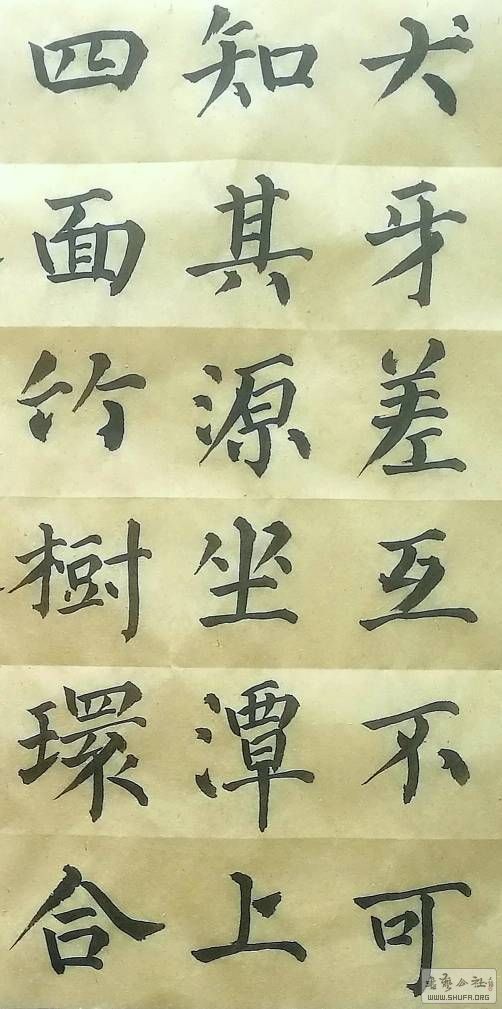 犬牙差互不可
知其源坐潭上
四面竹樹環合
書藝公社
WWW.SHUFA.ORG